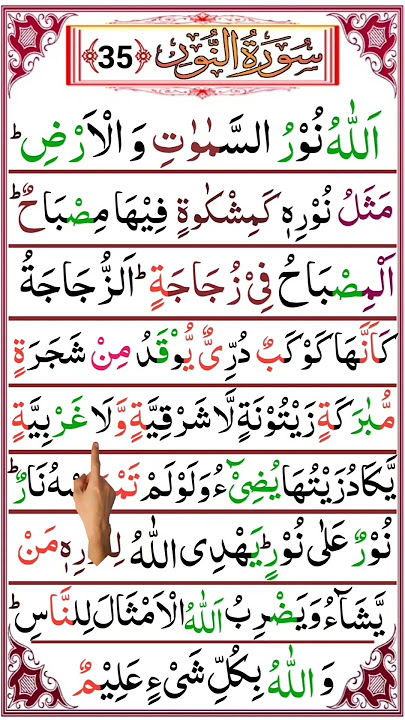 سُوْرَةُ النُّوْرِ ﴿35﴾
اَللّٰهُ نُوْرُ السَّمٰوٰتِ وَ الْاَرْضِ ؕ
مَثَلُ نُوْرِهٖ كَمِشْكٰوةٍ فِيْهَا مِصْبَاحٌ ؕ
اَلْمِصْبَاحُ فِيْ زُجَاجَةٍ ؕ اَلزُّجَاجَةُ
كَاَنَّهَا كَوْكَبٌ دُرِّيٌّ يُّوْقَدُ مِنْ شَجَرَةٍ
مُّبٰرَكَةٍ زَيْتُوْنَةٍ لَّا شَرْقِيَّةٍ وَّلَا غَرْبِيَّةٍ
يَّكَادُ زَيْتُهَا يُضِيْٓءُ وَلَوْ لَمْ نَارٌ ؕ
نُوْرٌ عَلٰى نُوْرٍ ؕ يَهْدِى اللّٰهُ لِنُوْرِهٖ مَنْ
يَّشَآءُ ؕ وَيَضْرِبُ اللّٰهُ الْاَمْثَالَ لِلنَّاسِ ؕ
وَ اللّٰهُ بِكُلِّ شَيْءٍ عَلِيْمٌ